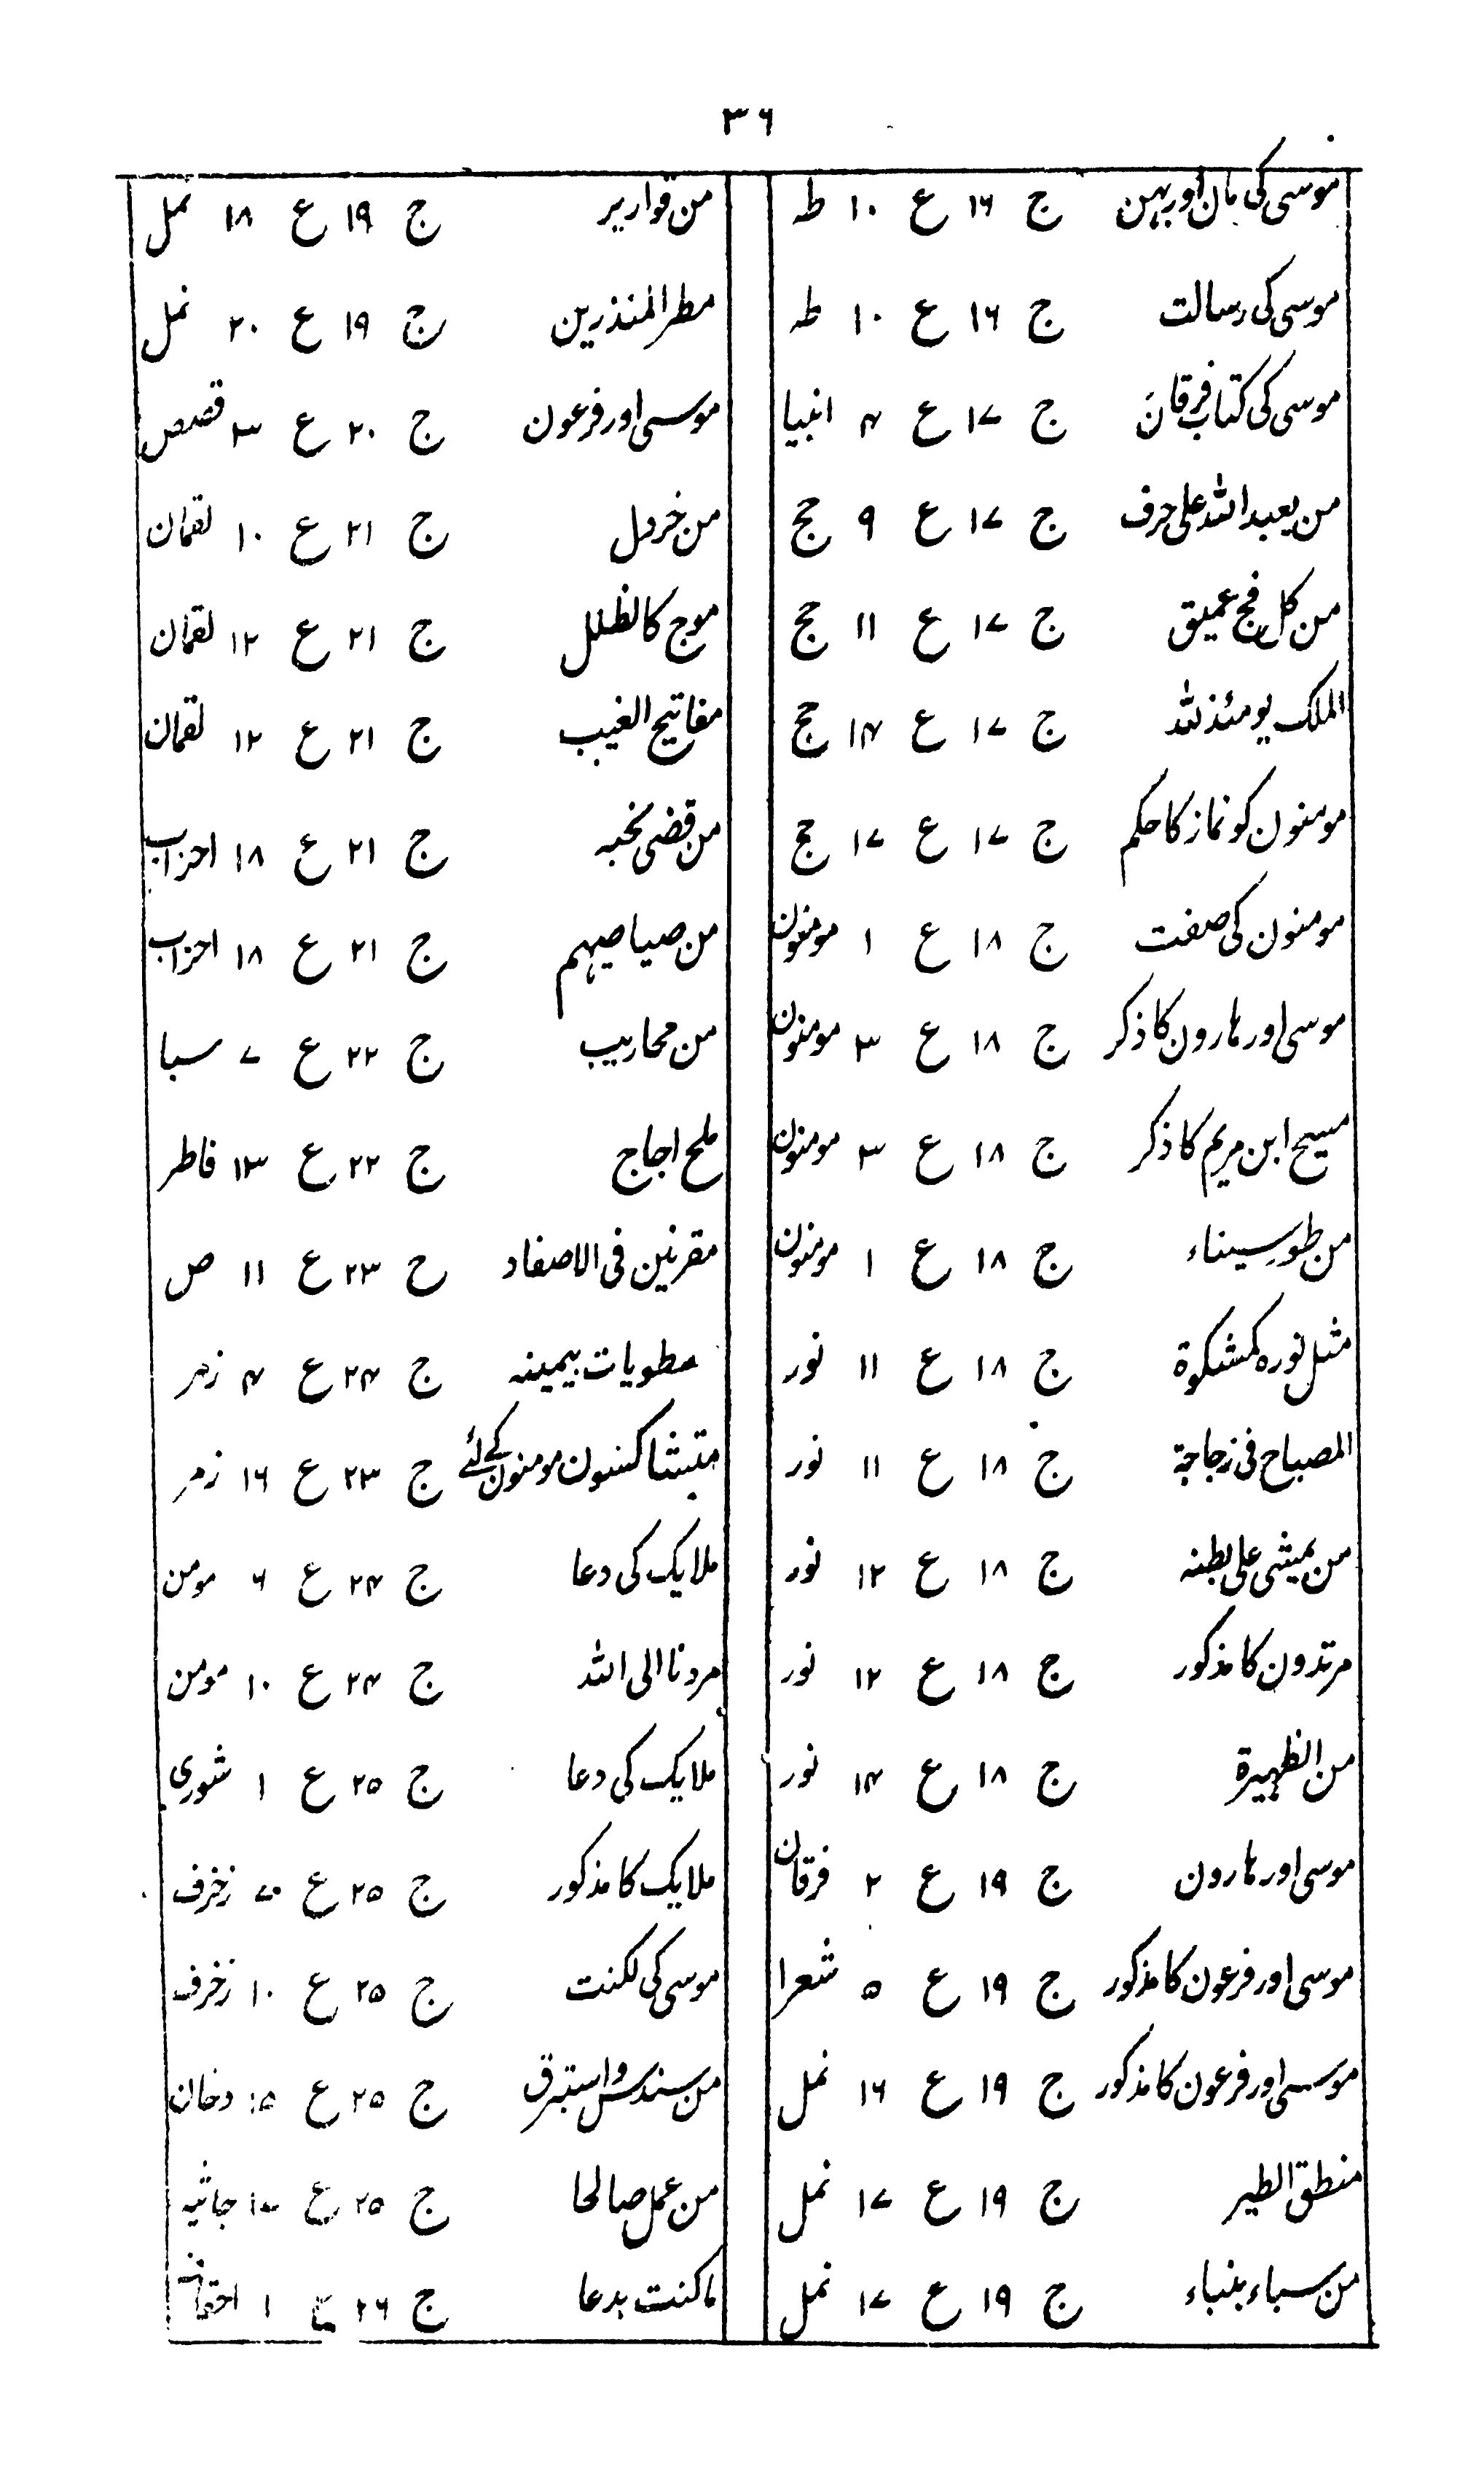 ۳۶
موسی کی مان اور بہن ج ۱۶ ع ۱۰ طہ
موسی کی رسالت ج ۱۶ ع ۱۰ طہ
موسی کی کتاب فرقان ج ۱۷ ع ۴ انبیا
من یعبد اللہ علی حرف ج ۱۷ ع ۹ حج
من کل فج عمیق ج ۱۷ ع ۱۱ حج
الملک یومئذ للہ ج ۱۷ ع ۱۴ حج
مومنون کو نماز کا حکم ج ۱۷ ع ۱۷ حج
مومنون کی صفت ج ۱۸ ع ۱ مومنون
موسی اور ہارون کا ذکر ج ۱۸ ع ۳ مومنون
مسیح ابن مریم کا ذکر ج ۱۸ ع ۳ مومنون
من طور سیناء ج ۱۸ ع ۱ مومنون
مثل نورہ کمشکوۃ ج ۱۸ ع ۱۱ نور
المصباح فی زجاجۃ ج ۱۸ ع ۱۱ نور
من یمشی علی بطنہ ج ۱۸ ع ۱۲ نور
مرتدون کا مذکور ج ۱۸ ع ۱۲ نور
من الظہیرۃ ج ۱۸ ع ۱۴ نور
موسی اور ہارون ج ۱۹ ع ۲ فرقان
موسی اور فرعون کا مذکور ج ۱۹ ع ۵ شعرا
موسی اور فرعون کا مذکور ج ۱۹ ع ۱۶ نمل
منطق الطیر ج ۱۹ ع ۱۷ نمل
من سباء بنباء ج ۱۹ ع ۱۷ نمل
من قواریر ج ۱۹ ع ۱۸ نمل
مطر المنذرین ج ۱۹ ع ۲۰ نمل
موسی اور فرعون ج ۲۰ ع ۳ قصص
من خردل ج ۲۱ ع ۱۰ لقمان
موج کالظلل ج ۲۱ ع ۱۲ لقمان
مفاتیح الغیب ج ۲۱ ع ۱۲ لقمان
من قضی نحبہ ج ۲۱ ع ۱۸ احزاب
من صیاصیہم ج ۲۱ ع ۱۸ احزاب
من محاریب ج ۲۲ ع ۷ سبا
ملح اجاج ج ۲۲ ع ۱۳ فاطر
مقرنین فی الاصفاد ح ۲۳ ع ۱۱ ص
مطویات بیمینہ ج ۲۴ ع ۴ زمر
متشاکسون مومنون کے لئے ج ۲۳ ع ۱۶ زمر
ملایک کی دعا ج ۲۴ ع ۶ مومن
مردنا الی اللہ ج ۲۴ ع ۱۰ مومن
ملایک کی دعا ج ۲۵ ع ۱ شوری
ملایک کا مذکور ج ۲۵ ع ۷ زخرف
موسی کی لکنت ج ۲۵ ع ۱۰ زخرف
من سندس و استبرق ج ۲۵ ع ۱۵ دخان
من عمل صالحا ج ۲۵ ع جاثیہ
ما کنت بدعا ج ۲۶ ع ۱ احقاف